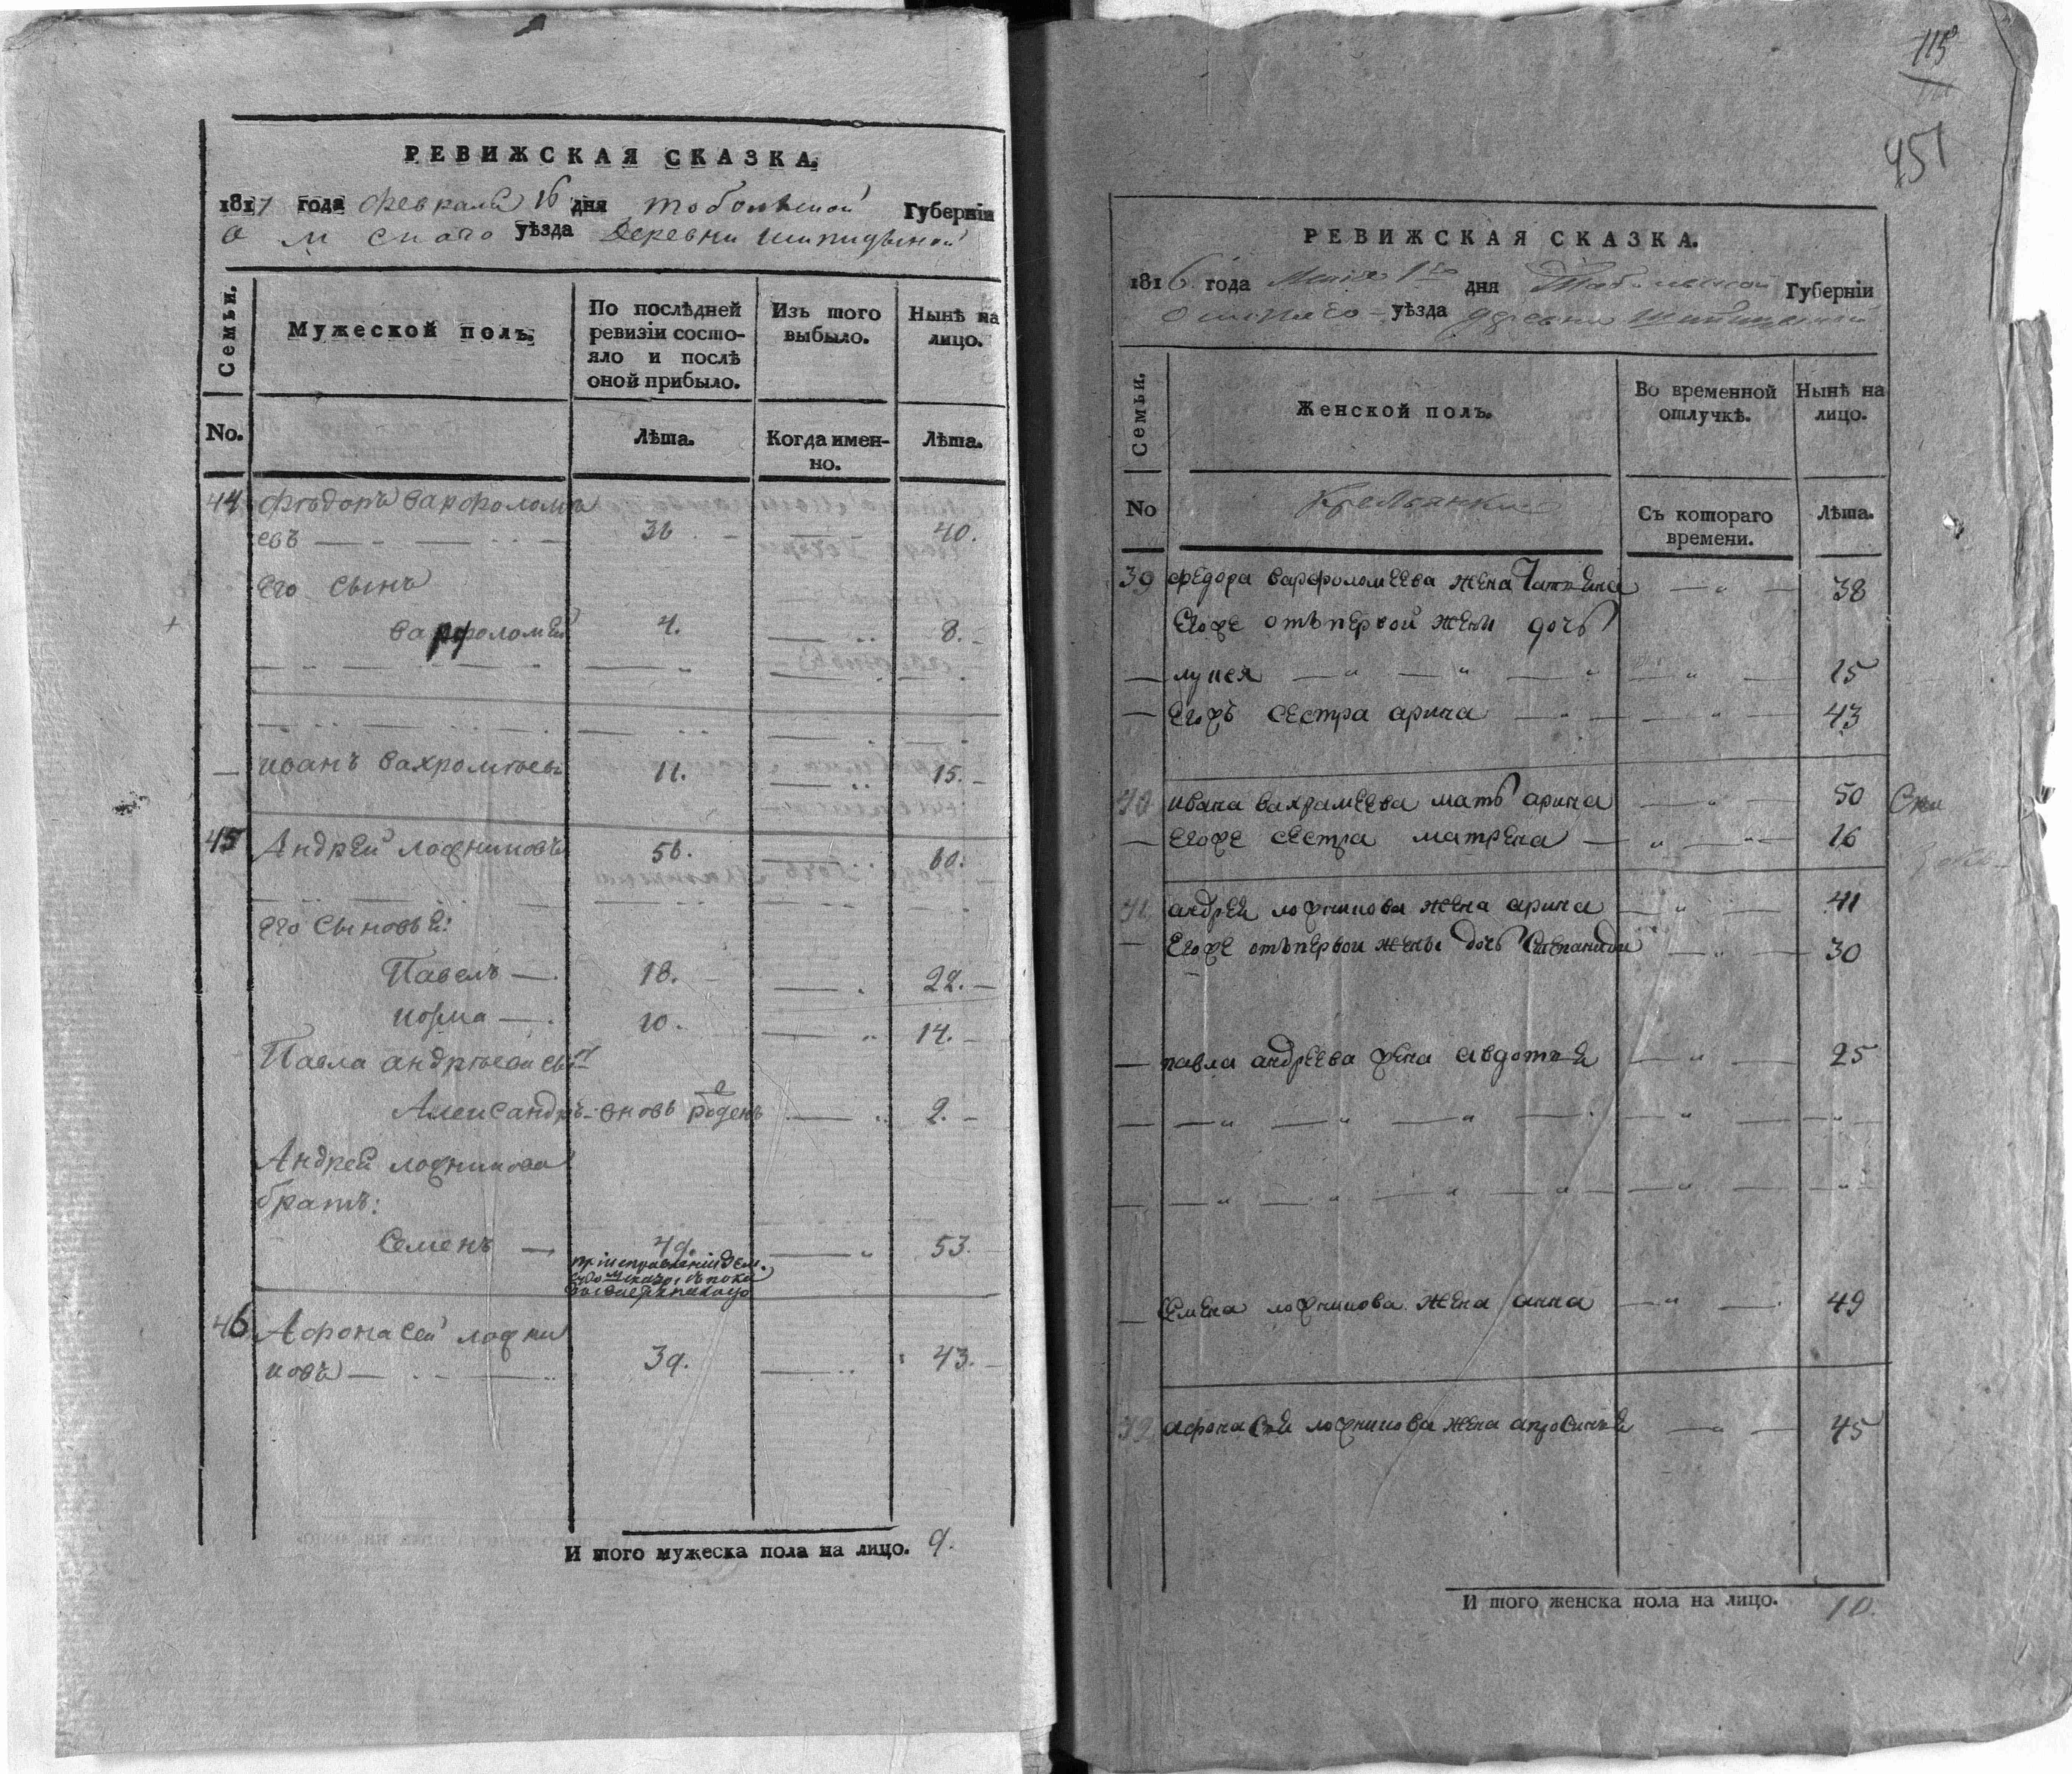 РЕВИЖСКАЯ СКАЗКА.
1817 года февраля 16 дня тобольской Губерніи
омскаго уѣзда деревни шипицыной
Семьи.
Мужеской полъ.
По послѣдней ревизіи состо-
яло и послѣ
оной прибыло.
Изъ того
выбыло.
Нынѣ на
лицо.
No.
Лѣта.
Когда имен-
но.
Лѣта.
44 Фѣдоръ варфоломѣ
евъ 36. 40.
Его сынъ
варфоломѣй 4. 8.
иванъ вахромѣевъ 11. 15.
45 Андрей логиновъ 56. 60.
Его сыновьѣ:
Павелъ 18. 22.
козма 10. 14.
Павла андрѣева сынъ
Александръ вновь рожденъ 2.
Андрей логинова
братъ:
Семенъ 49. 53.
46 Афонасей логи
новъ 39. 43.
И того мужеска пола на лицо. 9.
115
451
РЕВИЖСКАЯ СКАЗКА.
1816 года Маія 1го дня Тобольской Губерніи
омскаго уѣзда деревни Шипицыной
Семьи.
Женской полъ.
Во временной
отлучкѣ.
Нынѣ на
лицо.
No
Крестьянки
Съ котораго
времени.
Лѣта.
39 федора варфоломеева жена Татьяна 38
Егоже отъ первой жены дочь
лукея 15
Егожъ сестра арина 43
40 ивана вахрамеева мать арина 50
Егоже сестра матрена 16
41 андрей логинова жена арина 41
Егоже отъ первои жены дочь степанида 30
павла андреева жена авдотья 25
Семена логинова жена анна 49
42 афонасей логинова жена апросинья 45
И того женска пола на лицо. 10.